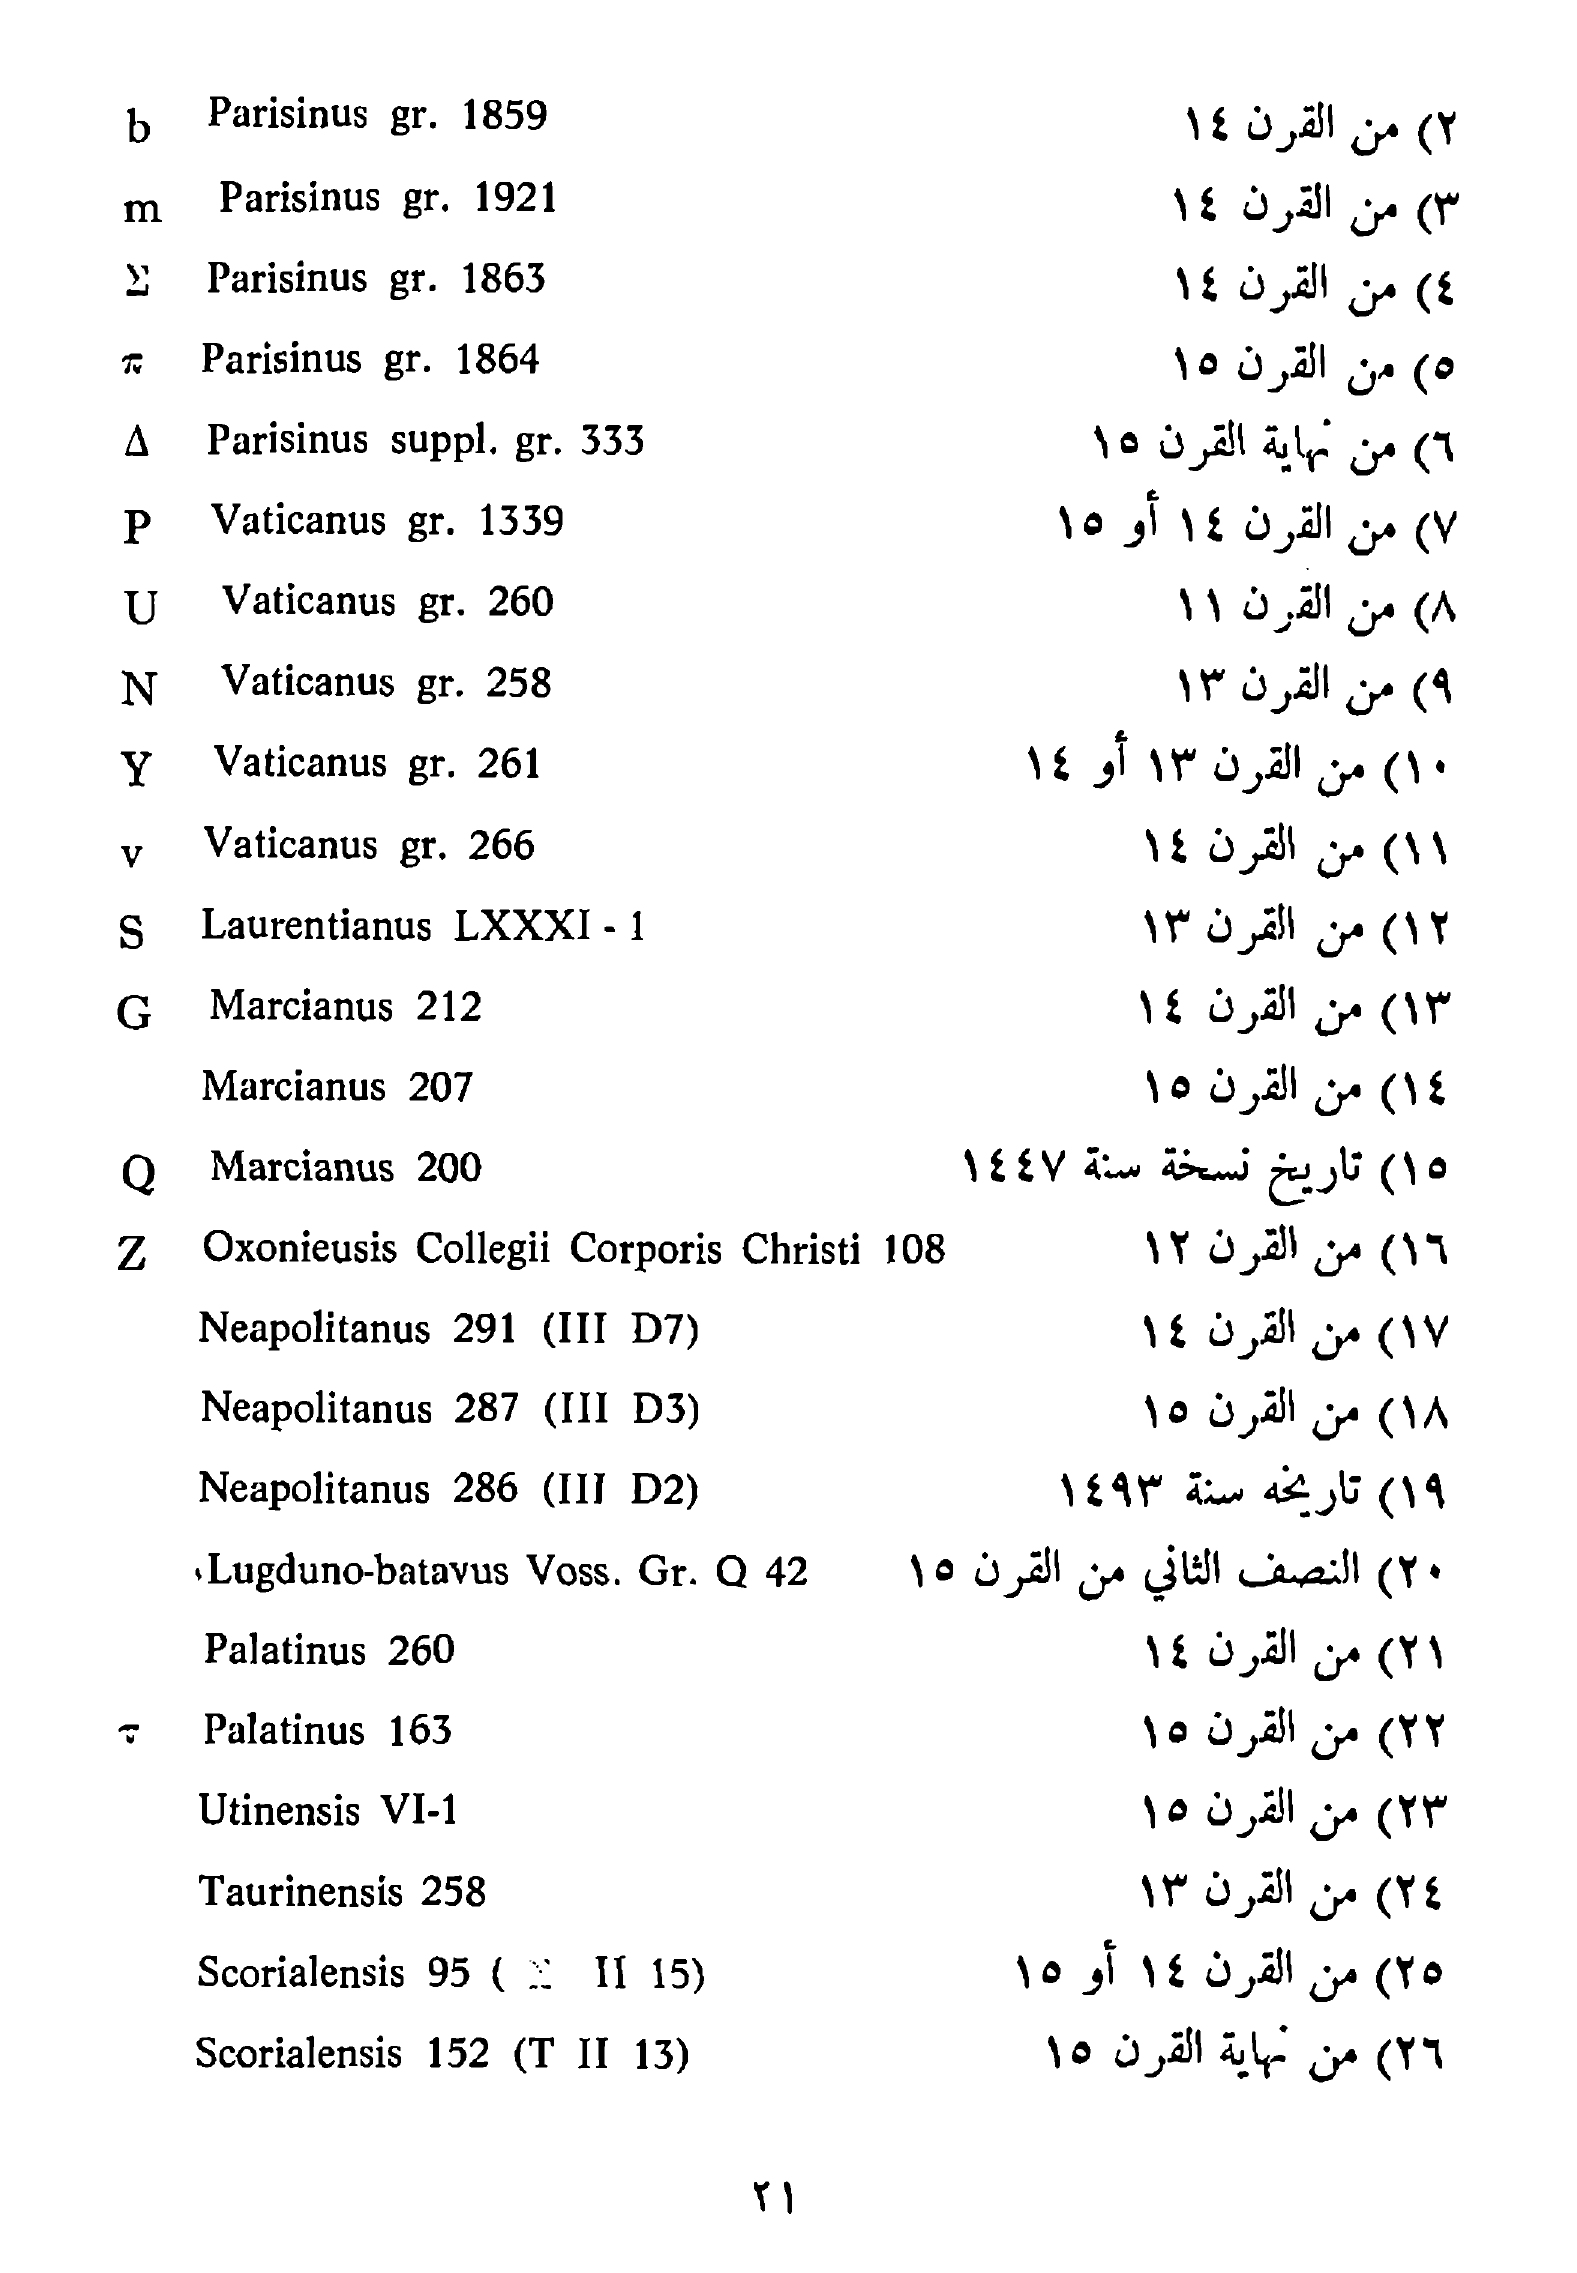 b Parisinus gr. 1859 ٢) من القرن ١٤
m Parisinus gr. 1921 ٣) من القرن ١٤
Σ Parisinus gr. 1863 ٤) من القرن ١٤
π Parisinus gr. 1864 ٥) من القرن ١٥
Δ Parisinus suppl. gr. 333 ٦) من نهاية القرن ١٥
P Vaticanus gr. 1339 ٧) من القرن ١٤ أو ١٥
U Vaticanus gr. 260 ٨) من القرن ١١
N Vaticanus gr. 258 ٩) من القرن ١٣
Y Vaticanus gr. 261 ١٠) من القرن ١٣ أو ١٤
v Vaticanus gr. 266 ١١) من القرن ١٤
S Laurentianus LXXXI - 1 ١٢) من القرن ١٣
G Marcianus 212 ١٣) من القرن ١٤
Marcianus 207 ١٤) من القرن ١٥
Q Marcianus 200 ١٥) تاريخ نسخة سنة ١٤٤٧
Z Oxonieusis Collegii Corporis Christi 108 ١٦) من القرن ١٢
Neapolitanus 291 (III D7) ١٧) من القرن ١٤
Neapolitanus 287 (III D3) ١٨) من القرن ١٥
Neapolitanus 286 (III D2) ١٩) تاريخه سنة ١٤٩٣
Lugduno-batavus Voss. Gr. Q 42 ٢٠) النصف الثاني من القرن ١٥،
Palatinus 260 ٢١) من القرن ١٤
τ Palatinus 163 ٢٢) من القرن ١٥
Utinensis VI-1 ٢٣) من القرن ١٥
Taurinensis 258 ٢٤) من القرن ١٣
Scorialensis 95 ( Σ II 15) ٢٥) من القرن ١٤ أو ١٥
Scorialensis 152 (T II 13) ٢٦) من نهاية القرن ١٥
٢١